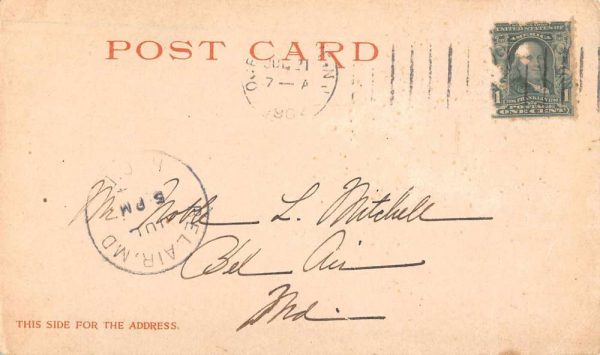 POST CARD
JUL 21
7 — A
UNITED STATES OF AMERICA
1 1
POSTAGE
ONE CENT
BELAIR, MD
JUL
5 PM
Mr. Noble L. Mitchell
Bel Air
Md.
THIS SIDE FOR THE ADDRESS.